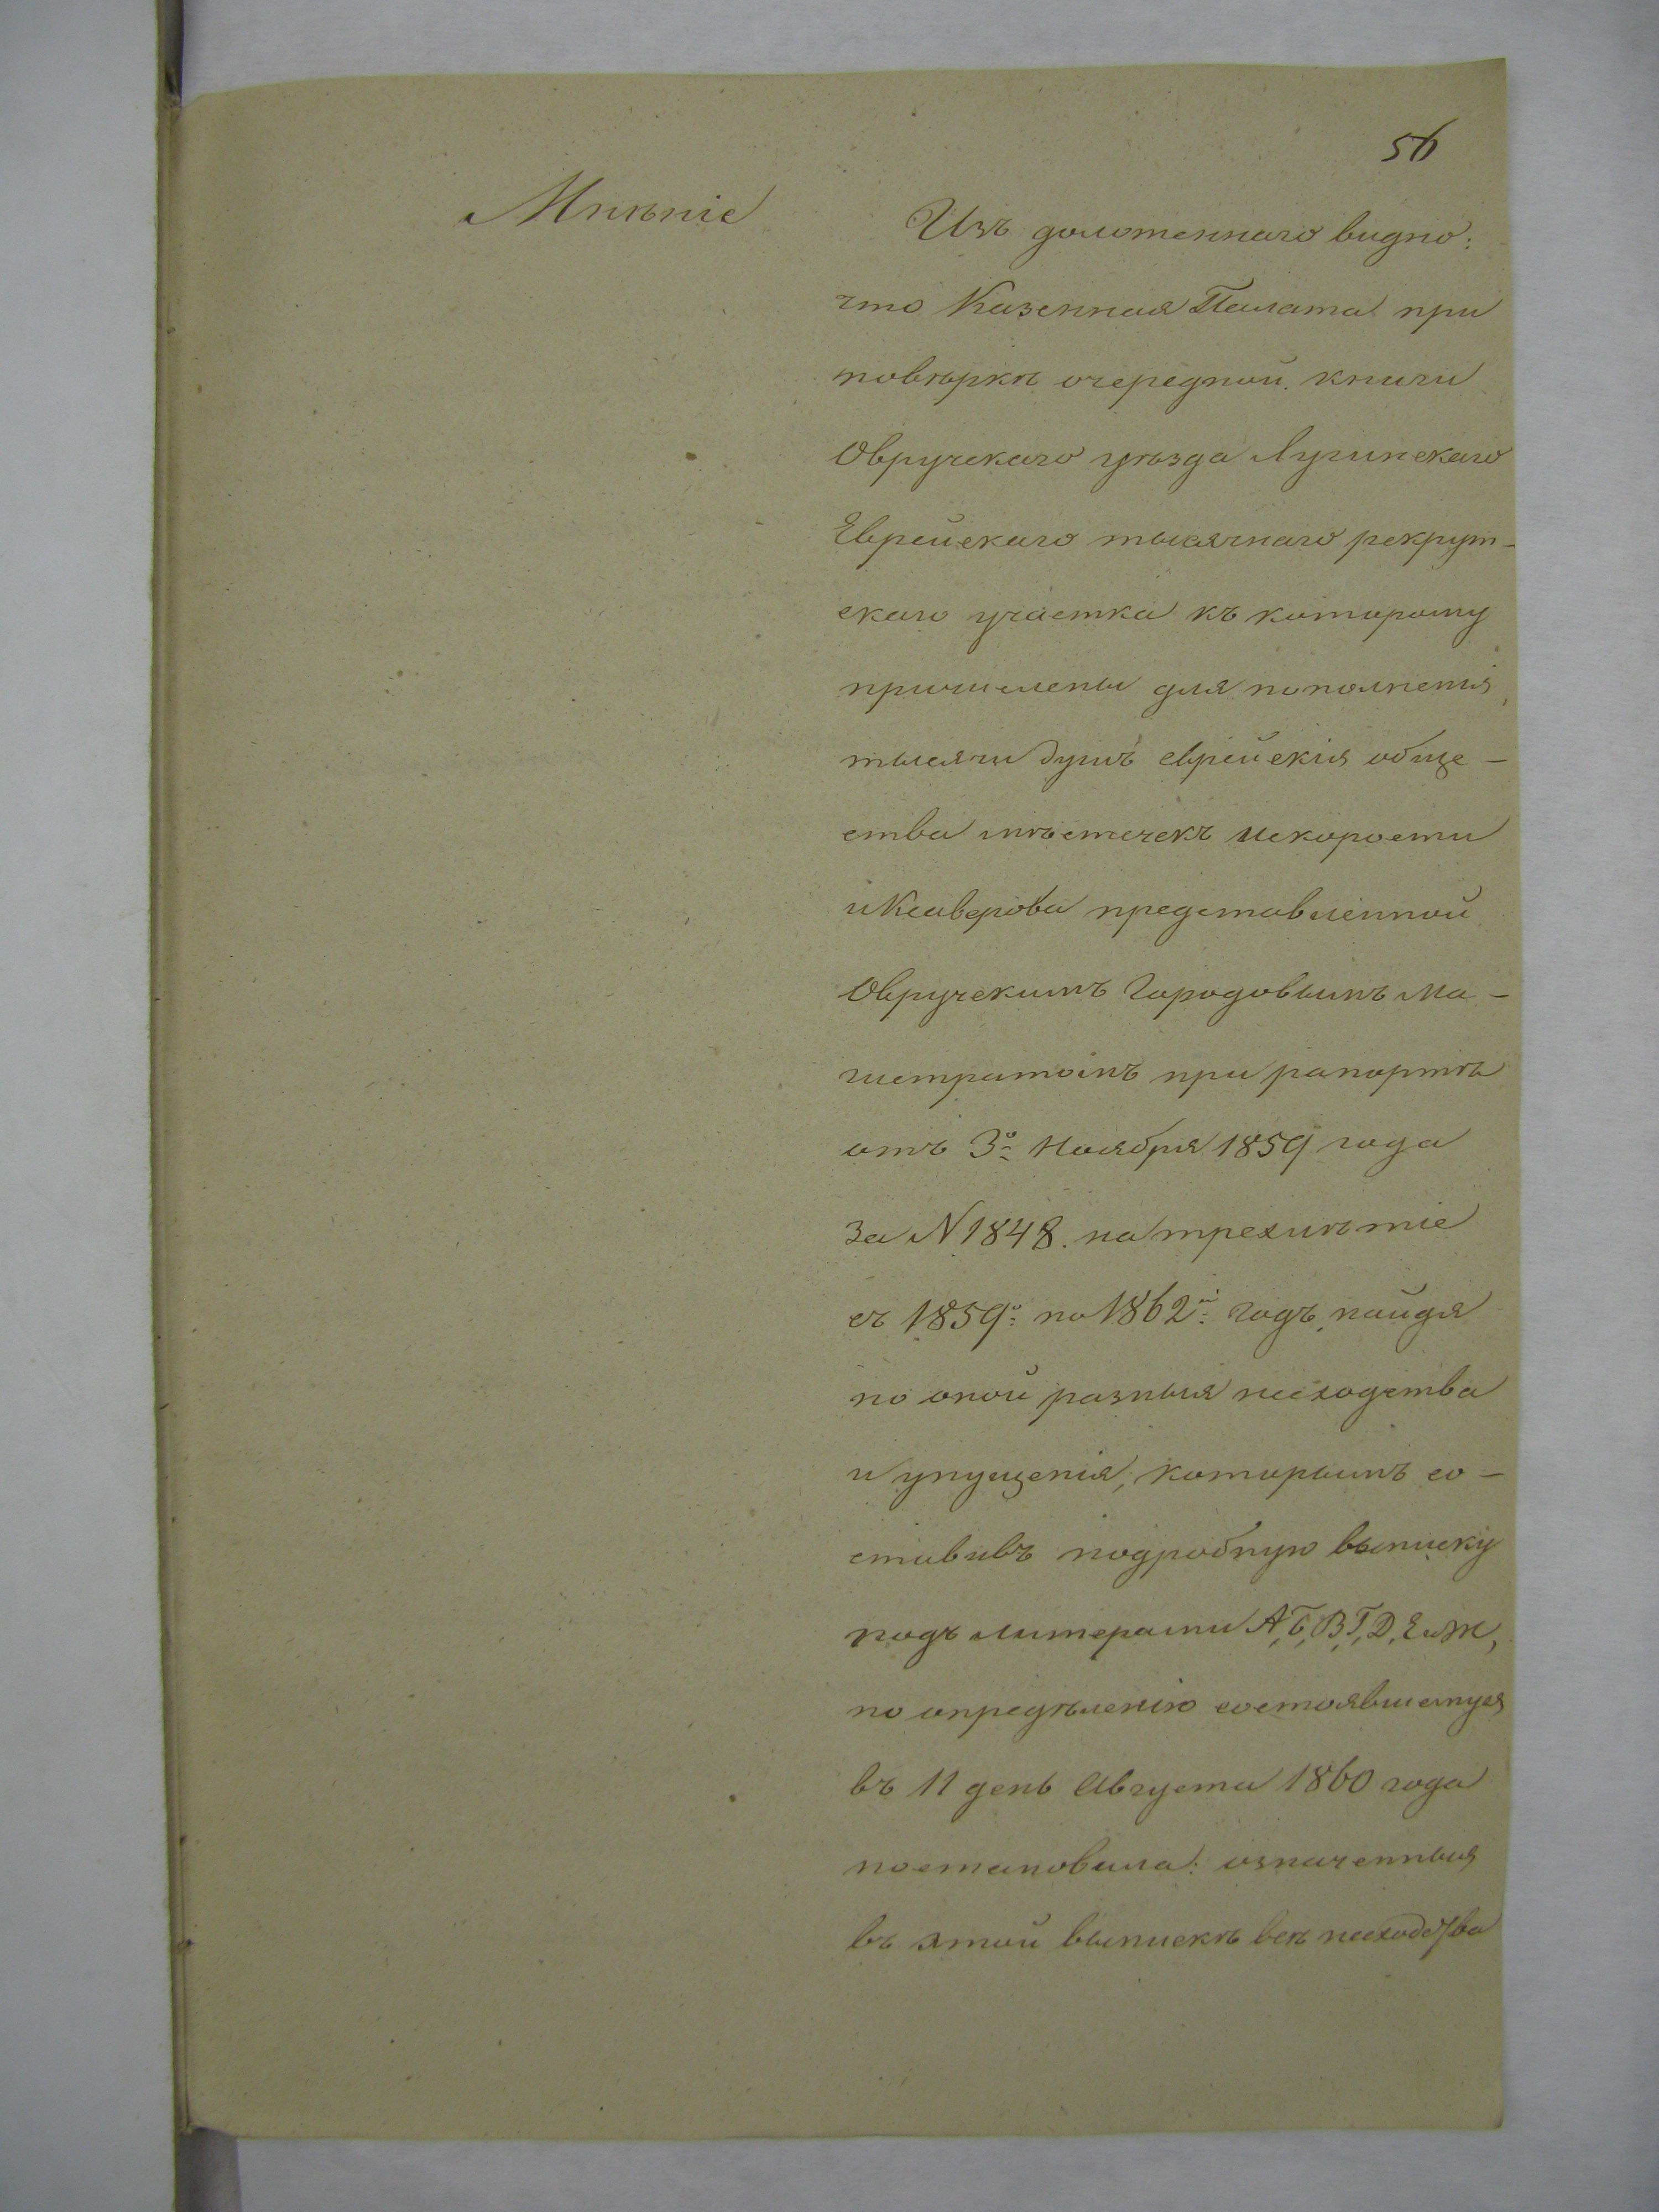 56
Мнѣніе
Изъ доложеннаго видно:
что Казенная Палата при
повѣркѣ очередной книги
Овручскаго уѣзда Лугинскаго
Еврейскаго тысячнаго рекрут-
скаго участка къ которому
причислены для пополненія
тысячи душъ еврейскія обще-
ства мѣстечекъ Искорости
и Ксаверова представленной
Овручскимъ Городовымъ Ма-
гистратомъ при рапортѣ
отъ 3º Ноября 1859 года
За N 1848. на трехлѣтіе
съ 1859º по 1862й годъ, найдя
по оной разныя несходства
и упущенія, которымъ со-
ставивъ подробную выписку
подъ литерами А, Б, В, Г, Д, Е и Ж,
по опредѣленію состоявшемуся
въ 11 день Августа 1860 года
постановила: означенныя
въ этой выпискѣ всѣ несходства